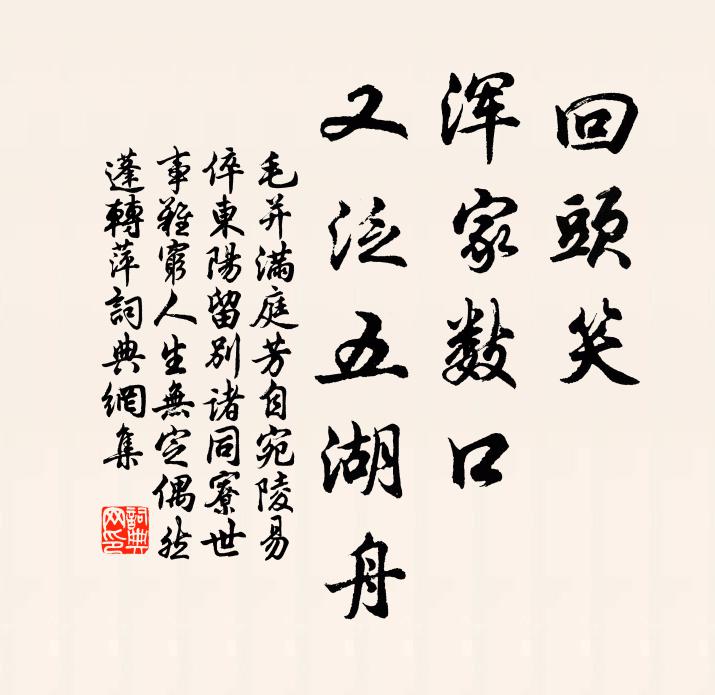 回頭笑
渾家數口
又泛五湖舟
毛并滿庭芳自宛陵易
倅東陽留別諸同寮世
事難窮人生無定偶然
蓬轉萍詞典網集
詞典
网印